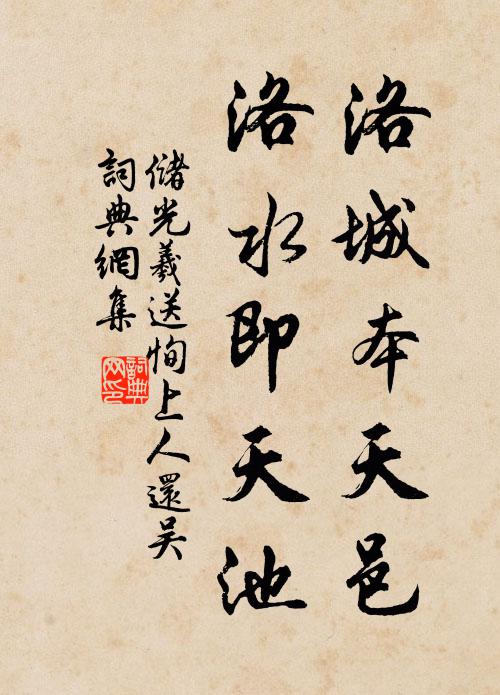 洛城本天邑
洛水即天池
儲光羲送恂上人還吴
詞典網集
詞典网印